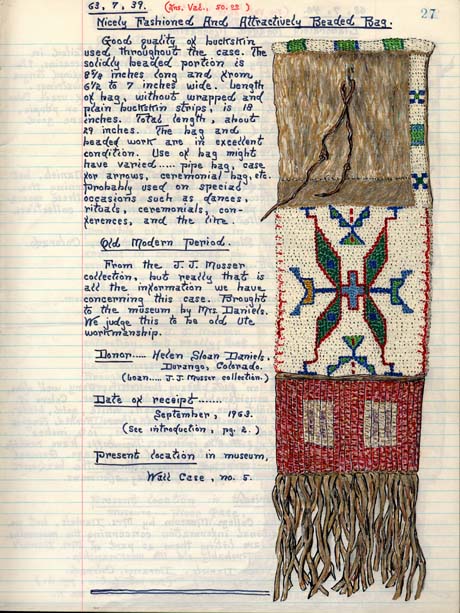 63, 7, 39. (Ins. Val., 50.00)
27
Nicely Fashioned And Attractively Beaded Bag.
Good quality of buckskin
used throughout the case. The
solidly beaded portion is
8 7/8 inches long and from
6 1/2 to 7 inches wide. Length
of bag, without wrapped and
plain buckskin strips, is 18
inches. Total length, about
29 inches. The bag and
beaded work are in excellent
condition. Use of bag might
have varied..... pipe bag, case
for arrows, ceremonial bag, etc.
Probably used on special
occasions such as dances,
rituals, ceremonials, con-
ferences, and the like.
Old Modern Period.
From the J. J. Musser
collection, but really that is
all the information we have
concerning this case. Brought
to the museum by Mrs Daniels.
We judge this to be old Ute
workmanship.
Donor.... Helen Sloan Daniels,
Durango, Colorado.
(Loan..... J. J. Musser collection.)
Date of receipt.......
September, 1963.
(See introduction, pg. 2.)
Present location in museum,
Wall Case, no. 5.